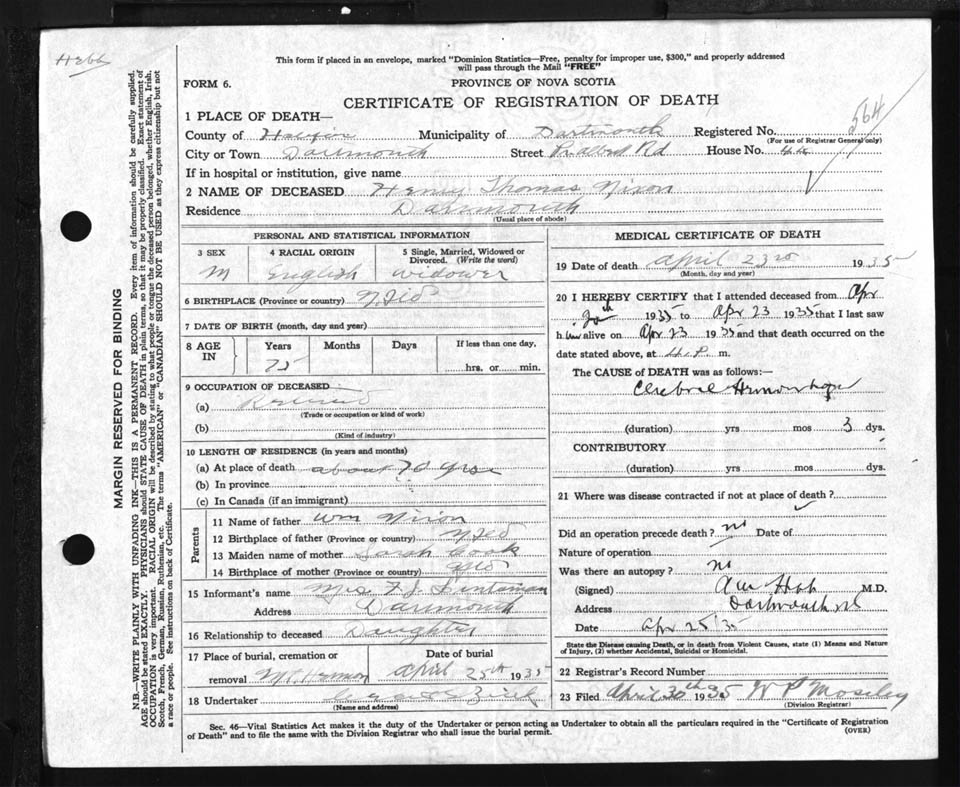 Hebb
This form if placed in an envelope, marked "Dominion Statistics—Free, penalty for improper use, $300," and properly addressed
will pass through the Mail "FREE"
FORM 6. PROVINCE OF NOVA SCOTIA
CERTIFICATE OF REGISTRATION OF DEATH
564
1 PLACE OF DEATH—
County of Halifax Municipality of Dartmouth Registered No.
(For use of Registrar General only)
City or Town Dartmouth Street Pr. albert Rd House No. 44
If in hospital or institution, give name
2 NAME OF DECEASED Henry Thomas Nixon
Residence Dartmouth
(Usual place of abode)
PERSONAL AND STATISTICAL INFORMATION
3 SEX 4 RACIAL ORIGIN 5 Single, Married, Widowed or
Divorced. (Write the word)
M English widower
6 BIRTHPLACE (Province or country) Nfld
7 DATE OF BIRTH (month, day and year)
8 AGE IN Years Months Days If less than one day,
75 hrs. or min.
9 OCCUPATION OF DECEASED
(a) Retired
(Trade or occupation or kind of work)
(b)
(Kind of industry)
10 LENGTH OF RESIDENCE (in years and months)
(a) At place of death about 70 yrs
(b) In province "
(c) In Canada (if an immigrant)
Parents
11 Name of father Wm Nixon
12 Birthplace of father (Province or country) Nfld
13 Maiden name of mother Sarah Cook
14 Birthplace of mother (Province or country) Nfld
15 Informant's name Mrs F J
Address Dartmouth
16 Relationship to deceased Daughter
17 Place of burial, cremation or Date of burial
removal Mt. Hermon April 25th 1935
18 Undertaker
(Name and address)
MEDICAL CERTIFICATE OF DEATH
19 Date of death April 23rd 1935
(Month, day and year)
20 I HEREBY CERTIFY that I attended deceased from Apr
20th 1935 to Apr 23 1935 that I last saw
him alive on Apr 23 1935 and that death occurred on the
date stated above, at 4 P. m.
The CAUSE of DEATH was as follows:—
Cerebral Hemorrhage
(duration) yrs mos 3 dys.
CONTRIBUTORY
(duration) yrs mos dys.
21 Where was disease contracted if not at place of death?
Did an operation precede death? no Date of
Nature of operation
Was there an autopsy? no
(Signed) M.D.
Address Dartmouth NS
Date Apr 25/35
State the Disease causing Death, or in death from Violent Causes, state (1) Means and Nature
of Injury, (2) whether Accidental, Suicidal or Homicidal.
22 Registrar's Record Number
23 Filed April 30th 1935 W P Moseley
(Division Registrar)
Sec. 46—Vital Statistics Act makes it the duty of the Undertaker or person acting as Undertaker to obtain all the particulars required in the "Certificate of Registration
of Death" and to file the same with the Division Registrar who shall issue the burial permit. (OVER)
MARGIN RESERVED FOR BINDING
N.B.—WRITE PLAINLY WITH UNFADING INK—THIS IS A PERMANENT RECORD. Every item of information should be carefully supplied.
AGE should be stated EXACTLY. PHYSICIANS should STATE CAUSE OF DEATH in plain terms, so that it may be properly classified. Exact statement of
OCCUPATION is very important. RACIAL ORIGIN will be described by stating to what people or tongue the deceased person belonged, whether English, Irish,
Scotch, French, German, Russian, Ruthenian, etc. The terms "AMERICAN" or "CANADIAN" SHOULD NOT BE USED as they express citizenship but not
a race or people. See instructions on back of Certificate.